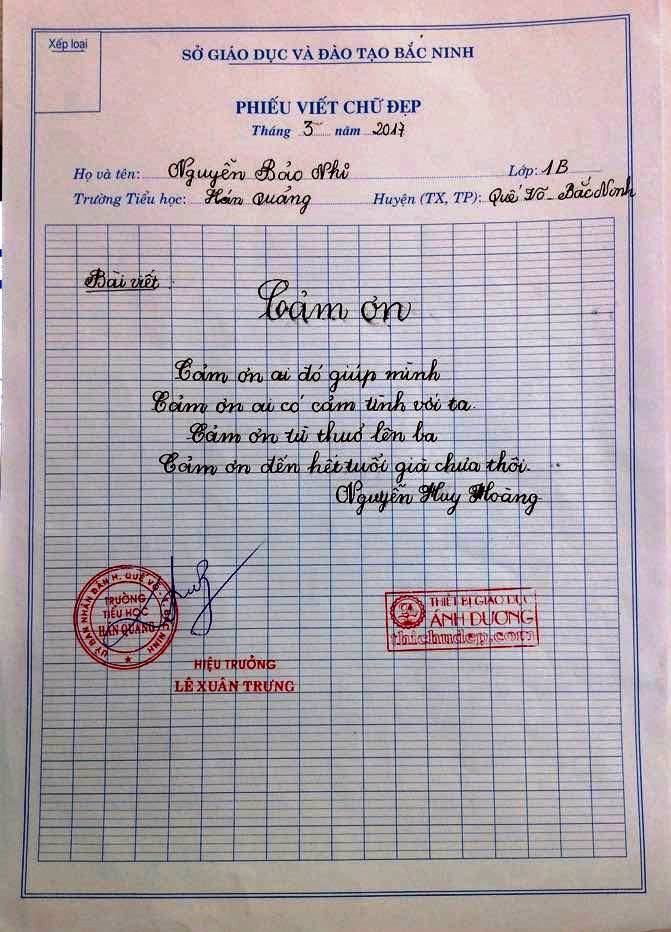 Xếp loại
SỞ GIÁO DỤC VÀ ĐÀO TẠO BẮC NINH
PHIẾU VIẾT CHỮ ĐẸP
Tháng 3 năm 2017
Họ và tên: Nguyễn Bảo Nhi Lớp: 1B
Trường Tiểu học: Hán Quảng Huyện (TX, TP): Quế Võ - Bắc Ninh
Bài viết:
Cảm ơn
Cảm ơn ai đó giúp mình
Cảm ơn ai có cảm tình với ta.
Cảm ơn từ thuở lên ba
Cảm ơn đến hết tuổi già chưa thôi.
Nguyễn Huy Hoàng
ỦY BAN NHÂN DÂN H. QUẾ VÕ - T. BẮC NINH
TRƯỜNG
TIỂU HỌC
HÁN QUẢNG
HIỆU TRƯỞNG
LÊ XUÂN TRƯNG
THIẾT BỊ GIÁO DỤC
ÁNH DƯƠNG
thichudep.com